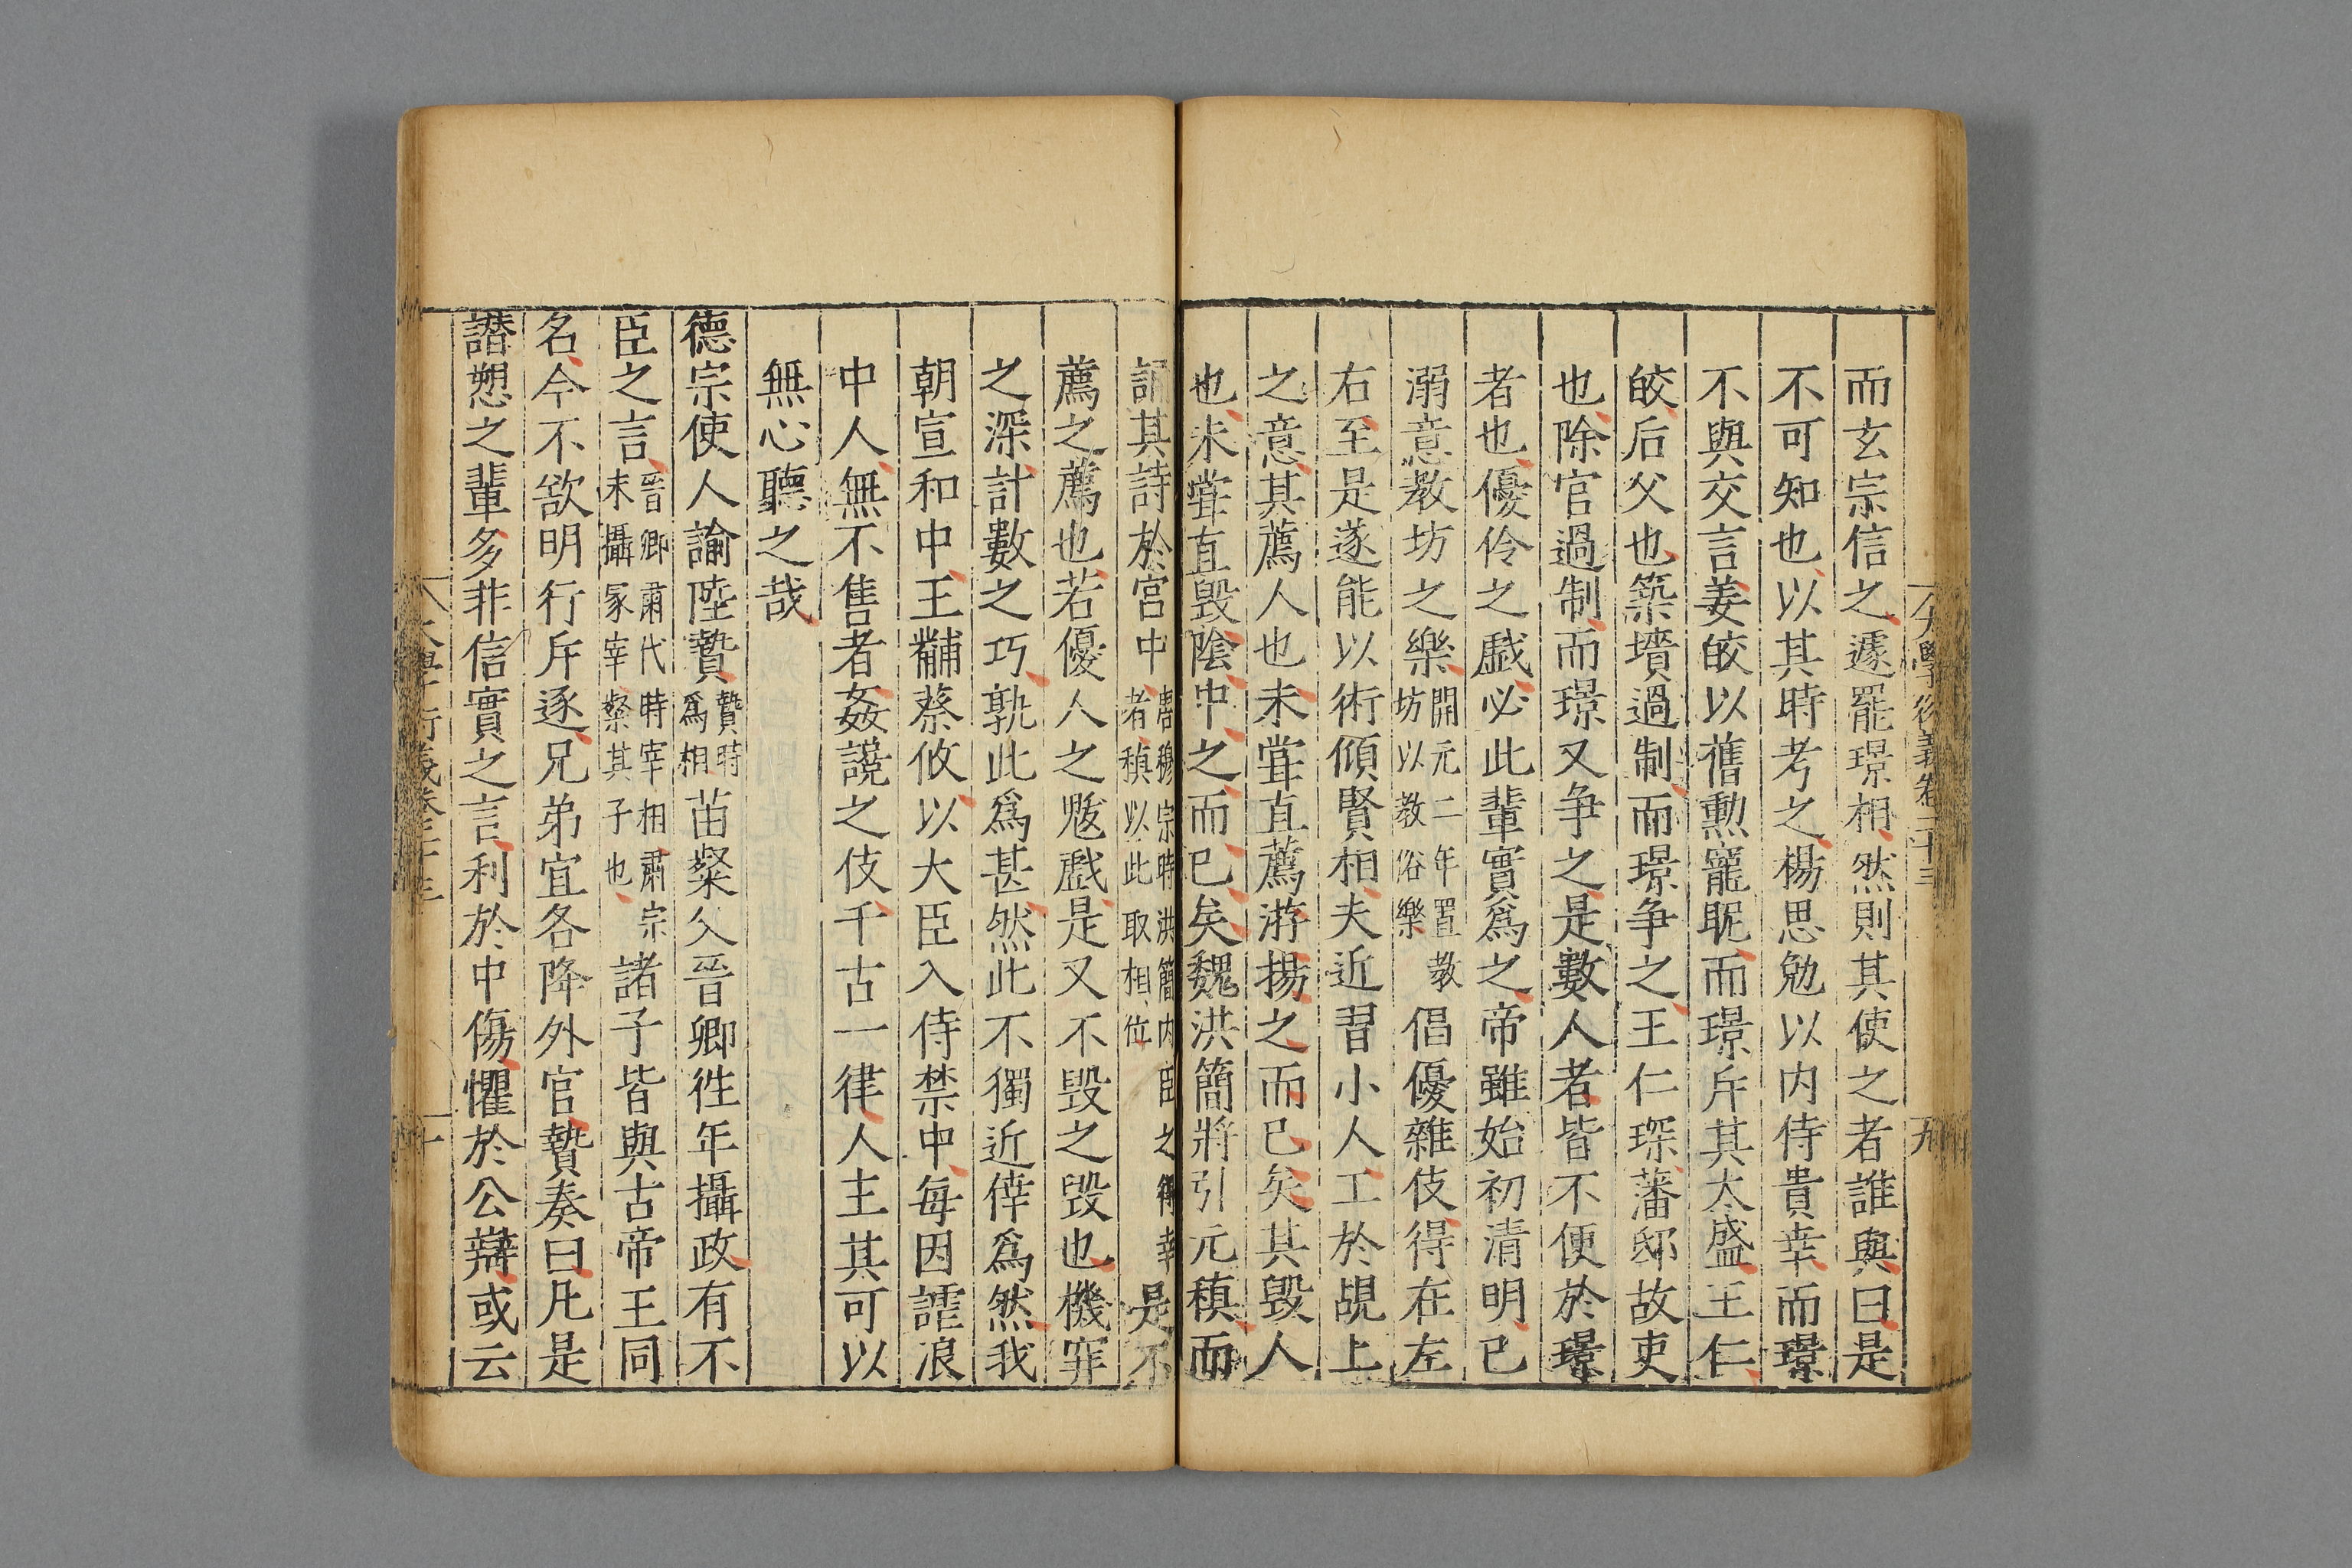 而玄宗信之遽罷璟相然則其使之者誰與曰是
不可知也以其時考之楊思勉以内侍貴幸而璟
不與交言姜皎以舊勲寵昵而璟斥其太盛王仁
皎后父也築墳過制而璟争之王仁琛藩邸故吏
也除官過制而璟又争之是數人者皆不便於璟
者也優伶之戯必此輩實爲之帝雖始初清明已
溺意教坊之樂開元二年置教坊以教俗樂倡優雜伎得在左
右至是遂能以術傾賢相夫近習小人工於覘上
之意其薦人也未甞直薦游揚之而已矣其毀人
也未甞直毀陰中之而已矣魏洪簡將引元稹而
誦其詩於宮中唐穆宗時洪簡内臣之得幸者稹以此取相位是不
薦之薦也若優人之魃戯是又不毀之毀也機穽
之深計數之巧孰此爲甚然此不獨近倖爲然我
朝宣和中王黼蔡攸以大臣入侍禁中每因謔浪
中人無不售者姦諛之伎千古一律人主其可以
無心聽之哉
德宗使人諭陸贄贄時爲相苗粲父晉卿徃年攝政有不
臣之言晉卿肅代時宰相肅宗末攝冢宰粲其子也諸子皆與古帝王同
名今不欲明行斥逐兄弟宜各降外官贄奏曰凡是
譖愬之輩多非信實之言利於中傷懼於公辯或云
大學衍義卷二十三
九
十